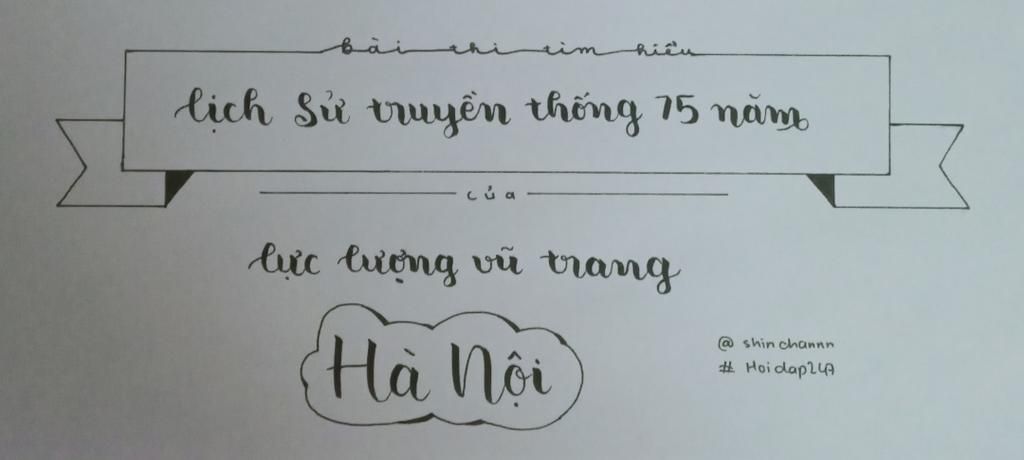 bài thi tìm hiểu
lịch sử truyền thống 75 năm
của
lực lượng vũ trang
Hà Nội
@ shinchannn
# Hoidap247